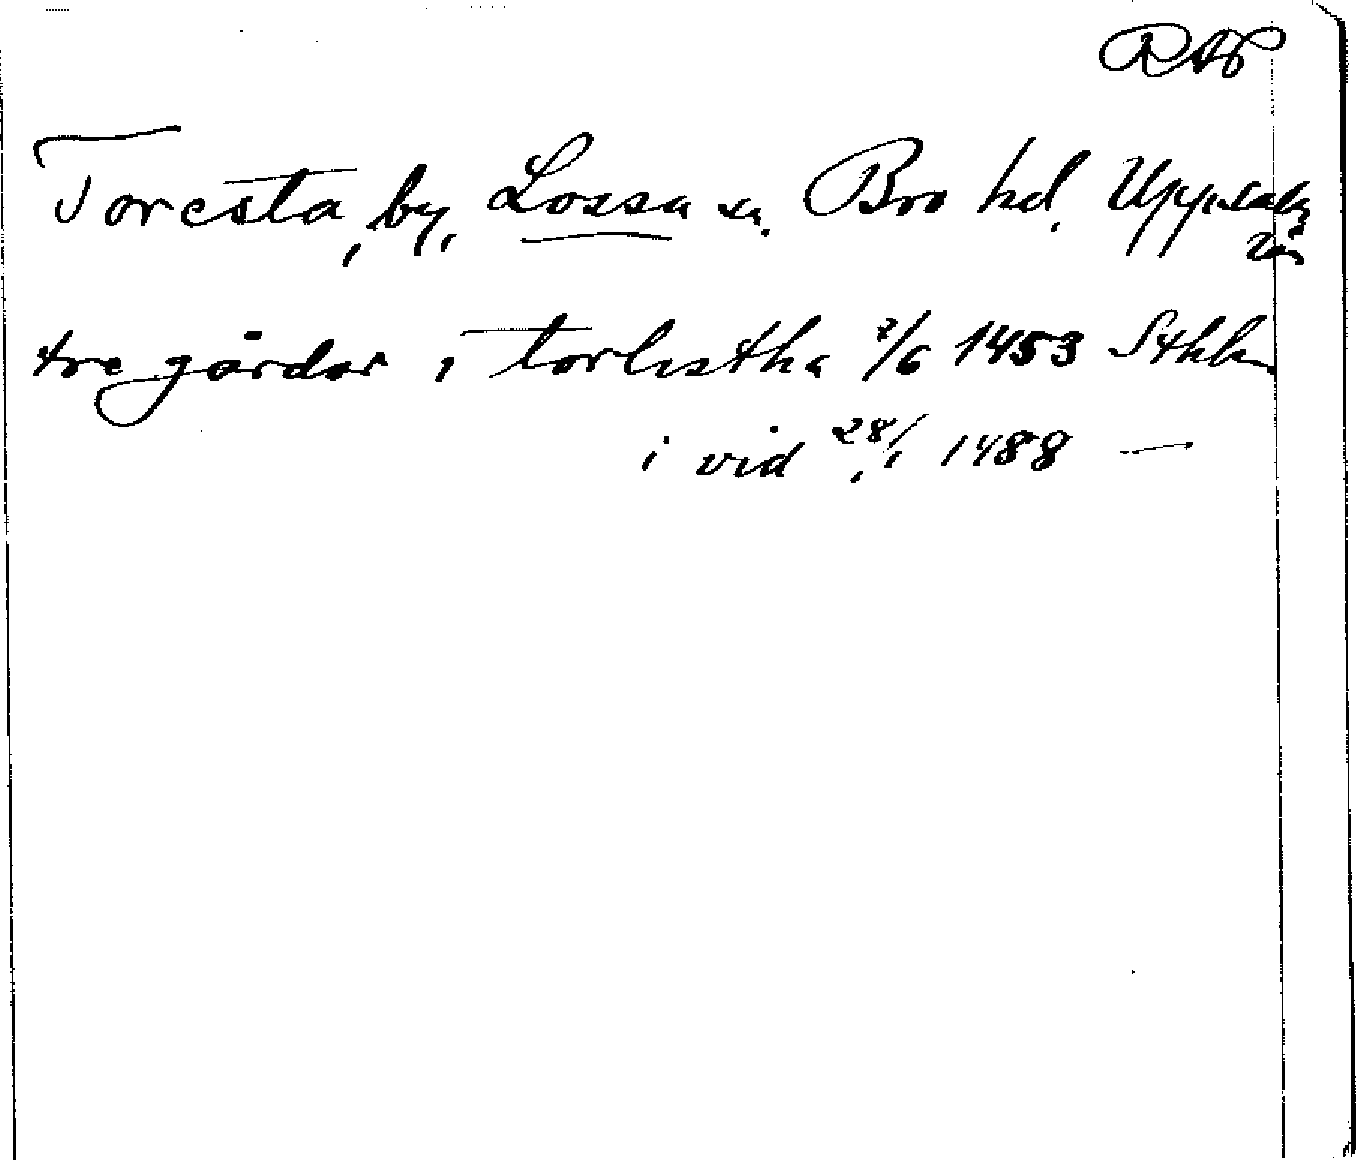 RAP
Toresta, by, Lossa sn. Bro hd. Uppsala
län
tre gårdar i torlestha 2/6 1453 Sthlm
i vid 28/1 1488 —